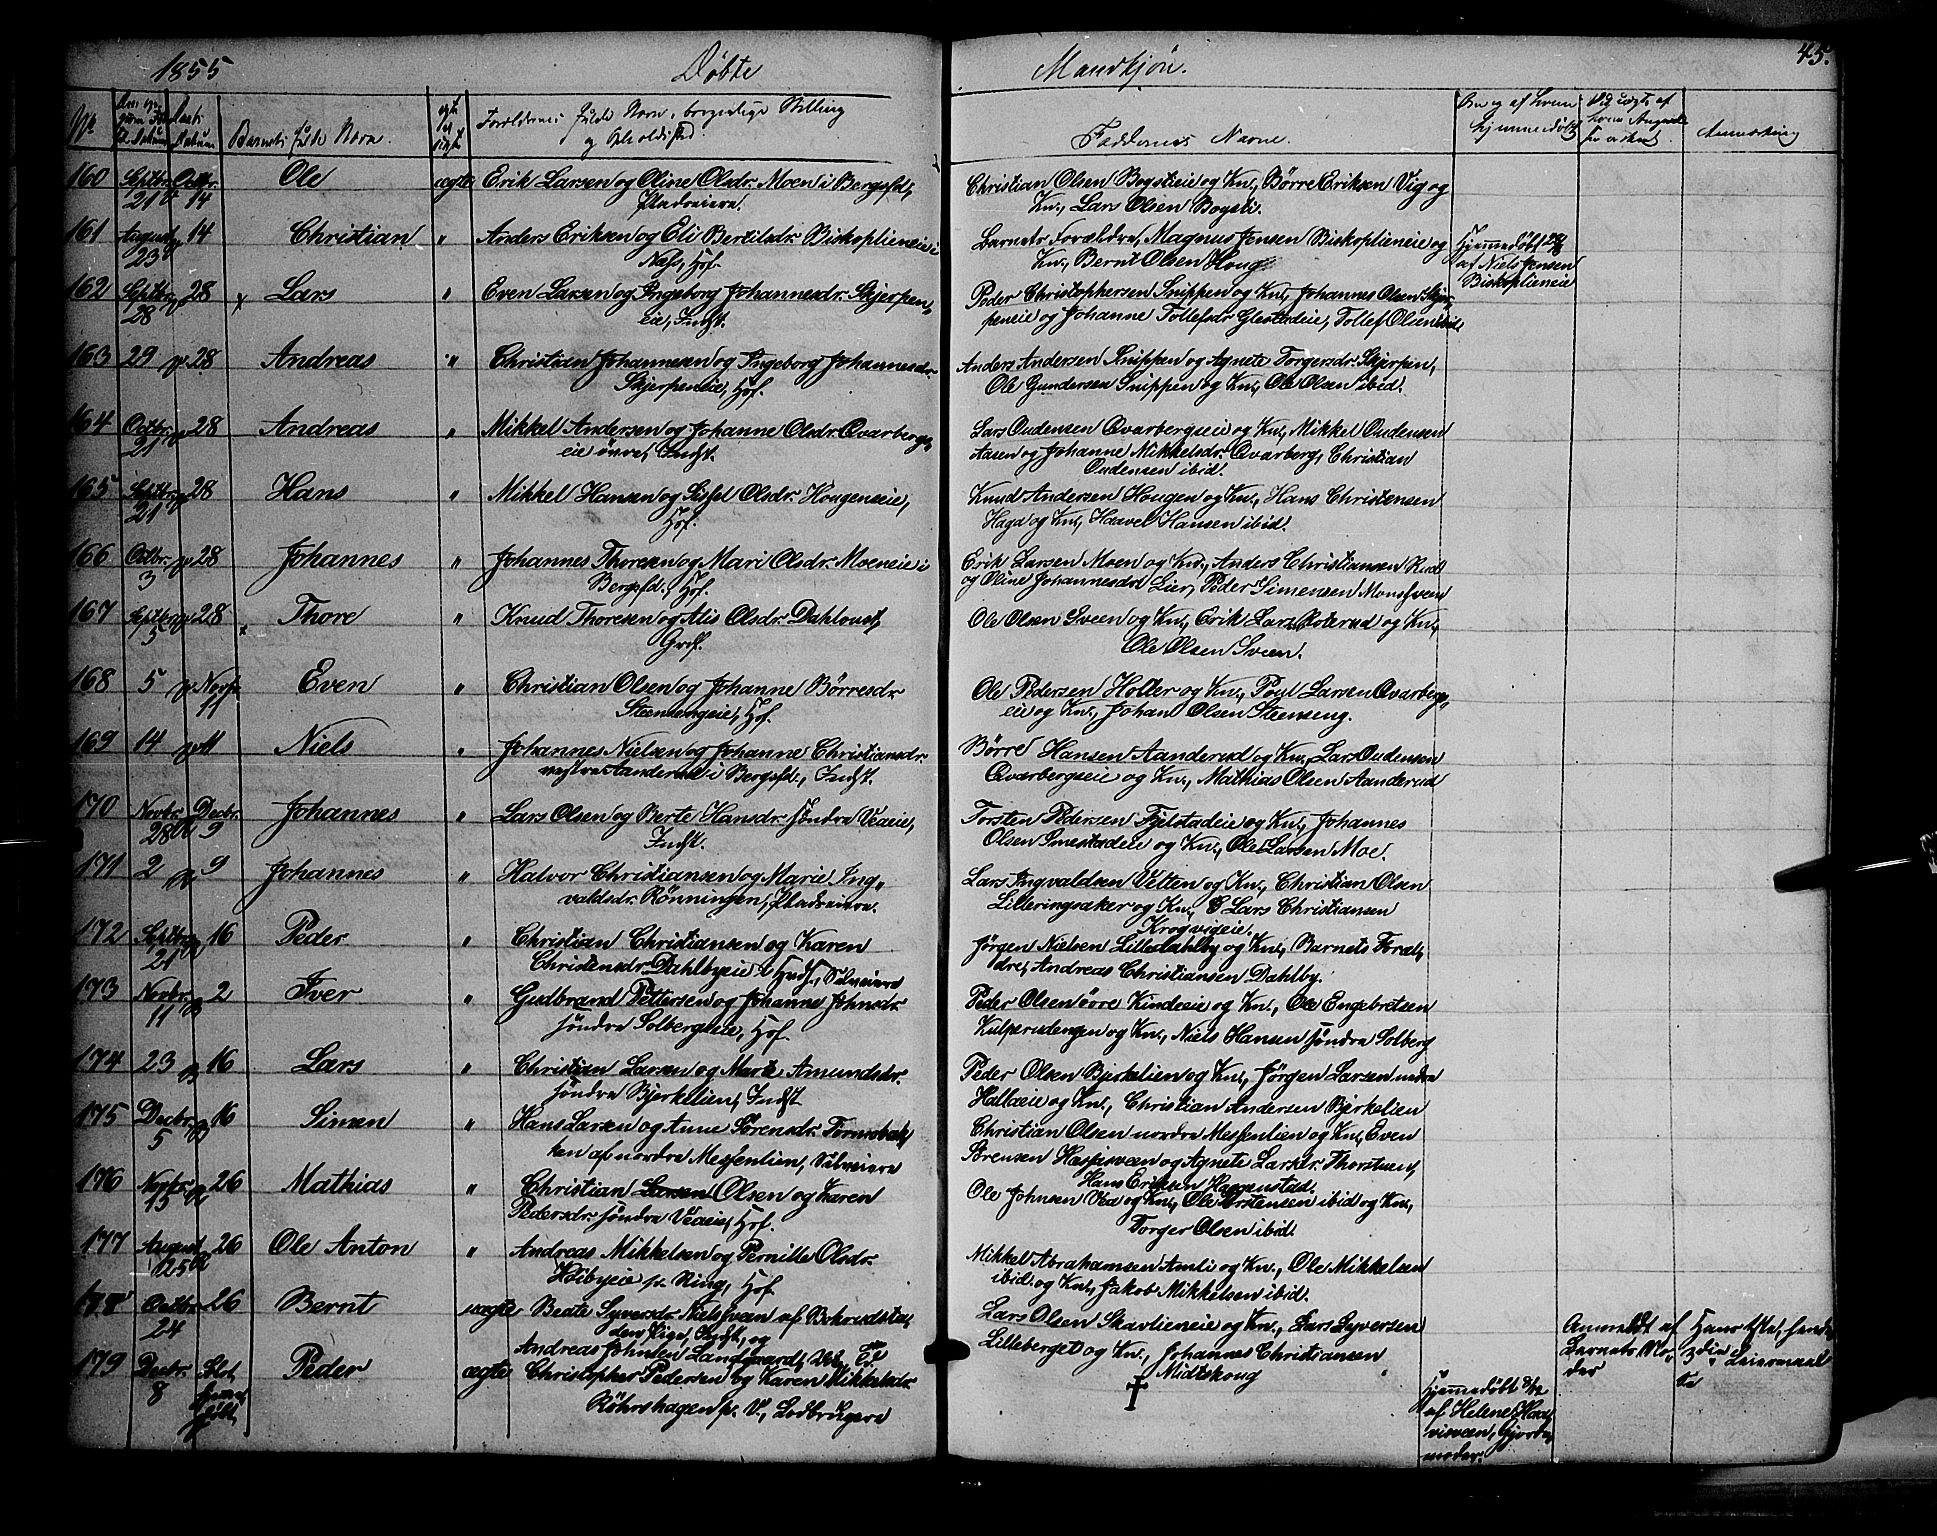 1855 Döbte Mandkjön. 45.
No Barnets fulde Navn. Forældrenes fulde Navn, borgerlige Stilling og Opholdsted. Faddernes Navne. Om og af hvem hjemmedöbt Anmærkning
160 Septbr. 21 Octbr. 14 Ole ægte Erik Larsen og Oline Olsdr. Moen i Bergsfd,
Pladseiere.
Christian Olsen Bogstieie og Kn, Börre Eriksen Vig og
Kn., Lars Olsen Bogsti.
161 August 23 14 Christian " Anders Eriksen og Eli Bertilsdr. Biskoplieneie i
Næss, Hof.
Barnets Forældre, Magnus Jensen Biskoplieneie og
Kn., Bernt Olsen Houg
Hjemmedöbt
af Niels Jensen
Biskoplieneie
162 Septbr. 28 28 x Lars " Even Larsen og Ingeborg Johannesdr. Skjerpen,
eie, Indst.
Peder Christophersen Snippen og Kn, Johannes Olsen Skjer-
peneie og Johanne Tollefsdr Glestadeie, Tollef Olsen ibid.
163 29 28 Andreas " Christian Johannesen og Ingeborg Johannesdr.
Skjerpeneie, Hof.
Anders Andersen Snippen og Agnete Torgersdr. Skjerpen,
Ole Gundersen Snippen og Kn, Ole Olsen ibid.
164 Octbr. 21 28 Andreas " Mikkel Andersen og Johanne Olsdr. Qvarbergs,
eie övre, Indst.
Lars Oudensen Qvarbergseie og Kn, Mikkel Oudensen
Aasen og Johanne Mikkelsdr. Qvarberg, Christian
Oudensen ibid.
165 Septbr. 21 28 Hans " Mikkel Hansen og Sissel Olsdr. Hougeneie,
Hof.
Knud Andersen Hougen og Kn, Hans Christensen
Haga og Kn, Haavel Hansen ibid.
166 Octbr. 3 28 Johannes " Johannes Thoresen og Mari Olsdr. Moeneie i
Bergsfd., Hof.
Erik Larsen Moen og Kn, Anders Christiansen Rud
og Oline Johannesdr Lier, Peder Simensen Monssveen
167 Septbr. 5 28 x Thore " Knud Thoresen og Alis Olsdr. Dahloust,
Grdf.
Ole Olsen Sveen og Kn, Erik Lars Roterud og Kn,
Ole Olsen Sveen.
168 5 Novbr 11 Even " Christian Olsen og Johanne Börresdr.
Steensengeie, Hof.
Ole Pedersen Holter og Kn, Poul Larsen Qvarbergs,
eie og Kn, Johan Olsen Steenseng.
169 14 11 Niels " Johannes Nielsen og Johanne Christiansdr.
vestre Aanderud i Bergsfd., Indst.
Börre Hansen Aanderud og Kn, Lars Oudensen
Qvarbergseie og Kn., Mathias Olsen Aanderud
170 Novbr. 28 Decbr. 9 Johannes " Lars Olsen og Berte Hansdr. söndre Veaeie,
Indst.
Torsten Pedersen Fjelstadeie og Kn, Johannes
Olsen Smestadeie og Kn., Ole Larsen Moe.
171 2 9 Johannes " Halvor Christiansen og Marie Ing,
valdsdr. Rönningen, Pladseiere.
Lars Ingvaldsen Velten og Kn, Christian Olsen
Lilleringsaker og Kn, Lars Christiansen
Krogvigeie.
172 Septbr. 21 16 Peder " Christian Christiansen og Karen
Christensdr. Dahlbyeie i Hudf, Selveiere
Jörgen Nielsen Lilledahlby og Kn, Barnets Foræl,
dre, Andreas Christiansen Dahlby.
173 Novbr. 11 2 Iver " Gudbrand Pettersen og Johanne Johnsdr.
söndre Solbergseie, Hof.
Peder Olsen övre Kindseie og Kn, Ole Engebretsen
Kulperudengen og Kn., Niels Hansen söndre Solberg
174 23 16 Lars " Christian Larsen og Marte Amundsdr.
söndre Bjerkelien, Indst
Peder Olsen Bjerkelien og Kn, Jörgen Larsen nedre
Hallaeie og Kn, Christian Andersen Bjerkelien
175 Decbr. 5 16 Simen " Hans Larsen og Anne Sörensdr. Tormsbak,
ken af nordre Messenlien, Selveiere
Christian Olsen nordre Messenlien og Kn, Even
Sörensen Hæssisveen og Agnete Larsdr. Thorstuen,
Hans Eriksen Haggenstad.
176 Novbr. 15 26 Mathias " Christian Larsen Olsen og Karen
Pedersdr. söndre Veaeie, Hof.
Ole Johnsen Vea og Kn, Ole Torstensen ibid og Kn,
Torger Olsen ibid.
177 August 25 26 Ole Anton " Andreas Mikkelsen og Pernille Olsdr.
Höibyeie pr. Ring, Hof.
Mikkel Abrahamsen Amli og Kn., Ole Mikkelsen
ibid. og Kn, Jakob Mikkelsen ibid.
178 Octbr. 24 26 Bernt uægte Beate Syversdr. Nielssveen af Bekerudsta,
den Pige, Indst, og
Andreas Johnsen Landgaard,
Lars Olsen Skavlieneie og Kn, Lars Syversen
Lilleberget og Kn, Johannes Christiansen
Midtskoug
Anmeldt af
Barnets Mo,
der
Hans 1ste, hendes
3die Leiermaal
179 Decbr. 8 Blot hjemmedöbt Peder ægte Christopher Pedersen og Karen Mikkelsdr.
Röhrshagen pr. V., Lodbrugere
†
Hjemmedöbt 8/12
af Helene
Gjorde,
moder.